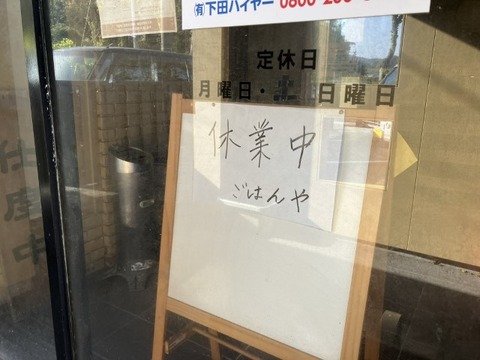 ㈲下田ハイヤー
定休日
月曜日・土 日曜日
休業中
ごはんや